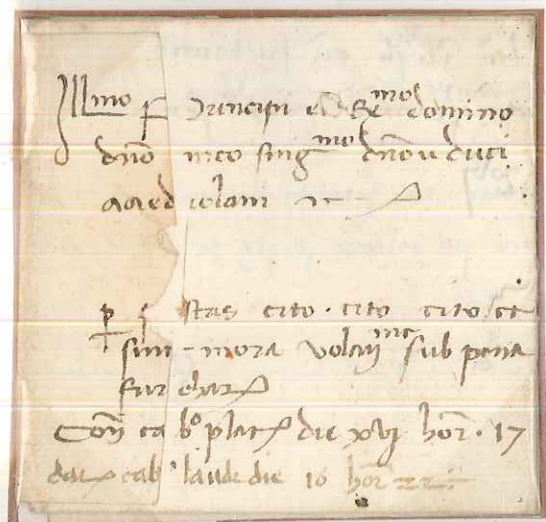 Illmo principi et Exmo domino
dño meo singmo dño duci
mediolani etc
p stas cito cito cito et
sine mora volantmc sub pena
furcharum
Consig cabo plac die xvj hor 17
dat cabo laude die 16 hor 22